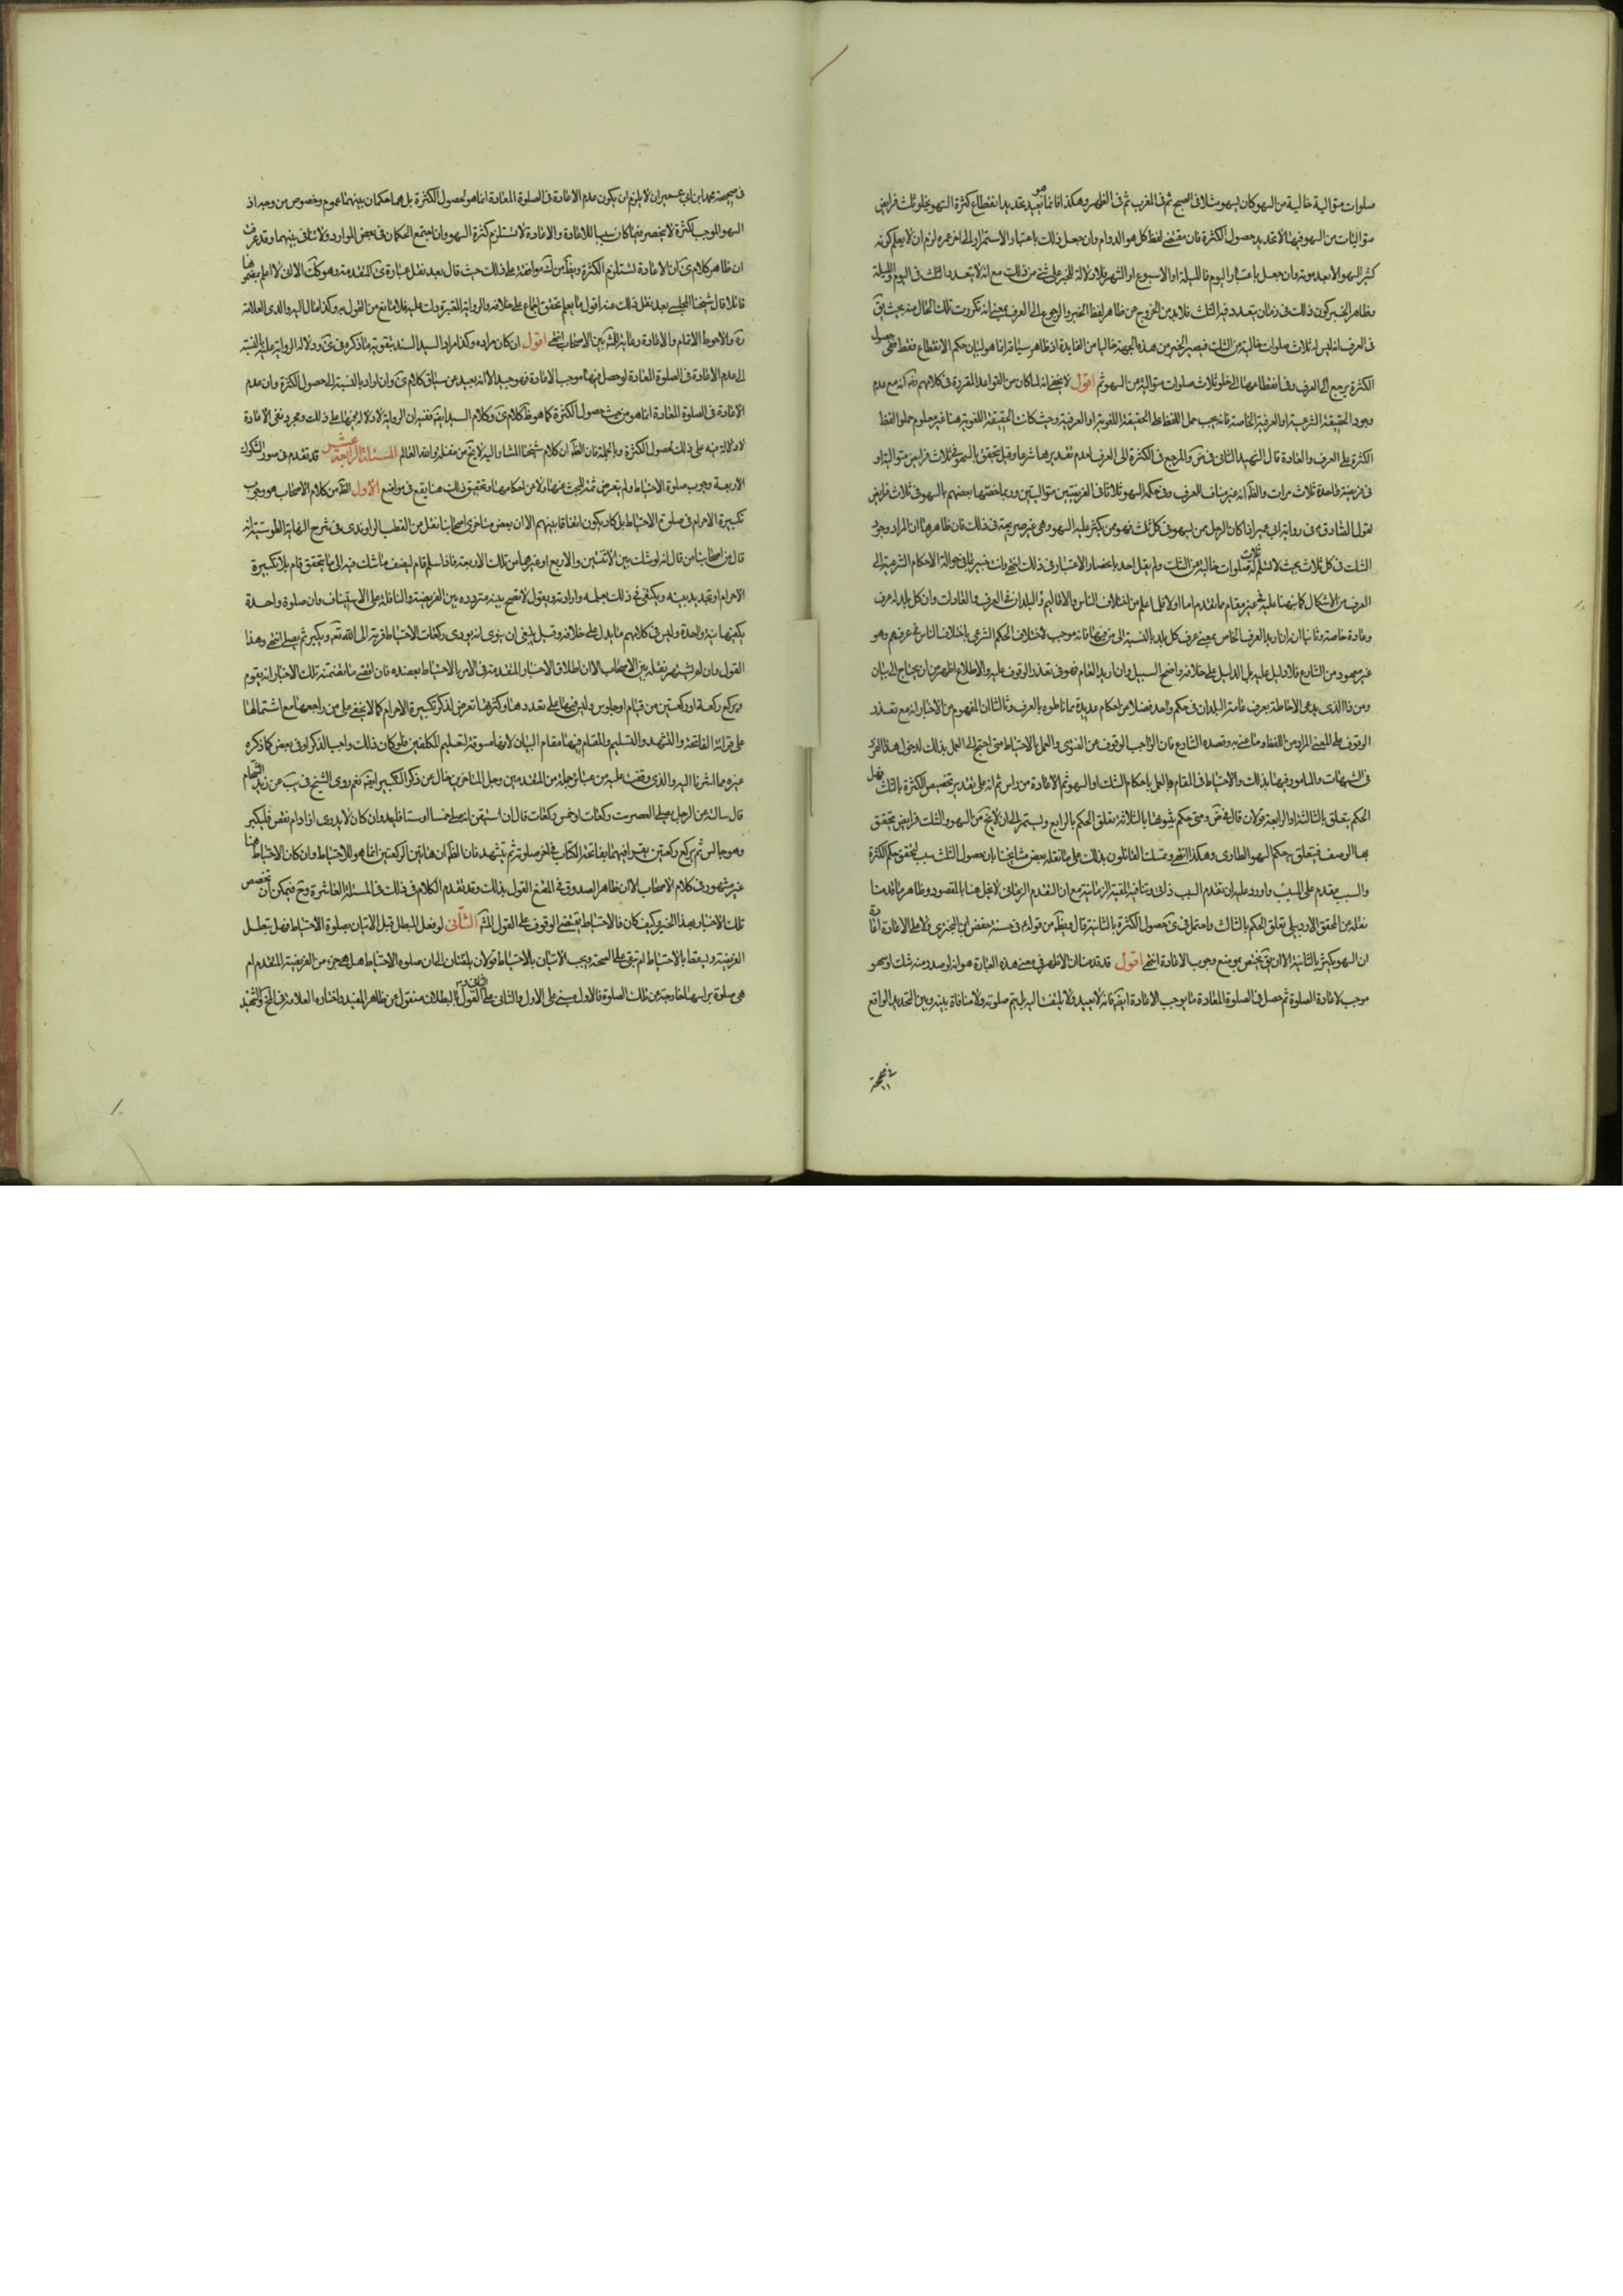 صلوات متوالية خالية من السهو كان يسهو مثلا في الصبح ثم في المغرب ثم في الظهر وهكذا فانما هو تحديد انقطاع كثرة السهو بخلو ثلث فرايض
متواليات من السهو فيها لا تحديد حصول الكثرة فان مقتضى لفظ كل هو الدوام وان جعل ذلك باعتبار الاستمرار الى اخر عمره لزم ان لا يعلم كونه
كثير السهو الا بعد موته وان جعل باعتبار اليوم والليلة او الاسبوع او الشهر فلا دلالة للخبر على شئ من ذلك مع انه لا يتعدد الثلث في اليوم والليلة
وظاهر الخبر كون ذلك في زمان يتعدد فيه الثلث فلا بد من الخروج عن ظاهر لفظ الخبر والرجوع الى العرف بمعنى انه تكررت تلك الحال منه بحيث يق
في العرف انه ليس له ثلاث صلوات خالية من الشك فيصير الخبر من هذه الجهة خاليا من الفايدة اذ ظاهر سياقه انما هو لبيان حكم الانقطاع فقط ففي حصول
الكثرة يرجع الى العرف وفي انقطاعها الى خلو ثلاث صلوات متوالية من السهو ثم اقول لا يخفى انه لما كان من القواعد المقررة في كلامهم انه مع عدم
وجود الحقيقة الشرعية او العرفية الخاصة فانه يجب حمل اللفظ على الحقيقة اللغوية او العرفية وحيث كانت الحقيقة اللغوية هنا غير معلوم حملوا لفظ
الكثرة على العرف والعادة قال الشهيد الثاني في ض والمرجع في الكثرة الى العرف لعدم تقديرها شرعا وقيل يتحقق بالسهو في ثلاث فرايض متوالية او
في فريضة واحدة ثلاث مرات والظ انه غير مناف للعرف وفي حكمه السهو ثلاثا في الفريضتين متواليتين وربما خصها بعضهم بالسهو في ثلاث فرايض
لقول الصادق ع في رواية ابن ابي عمير اذا كان الرجل ممن يسهو في كل ثلث فهو ممن يكثر عليه السهو وهي غير صريحة في ذلك فان ظاهرها ان المراد وجود
الشك في كل ثلاث بحيث لا تسلم له ثلاث صلوات خالية من الشك ولم يقل احد بانحصار الاعتبار في ذلك انتهى وانت خبير بما في حوالة الاحكام الشرعية الى
العرف من الاشكال كما نبهنا عليه في غير مقام مما تقدم اما اولا فلما علم من اختلاف الناس والاقاليم والبلدان في العرف والعادات وان كل بلد له عرف
وعادة خاصة وثانيا انه ان اريد العرف الخاص بمعنى عرف كل بلد بالنسبة الى من فيها فانه موجب لاختلاف الحكم الشرعي باختلاف الناس في عرفهم وهو
غير معهود من الشارع فلا دليل عليه بل الدليل على خلافه واضح السبيل وان اريد العام فهو في تعذر الوقوف عليه والاطلاع اظهر من ان يحتاج الى بيان
ومن ذا الذي يدعي الاحاطة بعرف عامة البلدان في حكم واحد فضلا عن احكام عديدة مما ناطوه بالعرف وثالثا ان المفهوم من الاخبار انه مع تعذر
الوقوف على المعنى المراد من اللفظ وما عنى به وقصده الشارع فان الواجب الوقوف عن الفتوى والعمل بالاحتياط متى احتيج الى العمل بذلك لدخول هذا الفرد
في الشبهات والمامور فيها بذلك والاحتياط في المقام هو العمل باحكام الشك او السهو ثم الاعادة من راس ثم انه على تقدير تخصيص الكثرة بالثلث فهل
الحكم يتعلق بالثالثة او الرابعة قولان قال في ض ومتى حكم بثبوتها بالثلاثة تعلق الحكم بالرابع ويستمر الى ان لا يخلو من السهو والشك فرايض يتحقق
بها الوصف فيتعلق به حكم السهو الطاري وهكذا انتهى وتمسك القائلون بذلك على ما نقله بعض مشايخنا بان حصول الثلث سبب لتحقق حكم الكثرة
والسبب مقدم على المسبب واورد عليه ان تقدم السبب ذاتي ولا تنافيه المعية الزمانية مع ان التقدم الزماني لا يخل هنا بالمقصود وظاهر ما قدمنا
نقله عن المحقق الاردبيلي تعلق الحكم بالثالث واحتمل في ك حصول الكثرة بالثانية قال ويظهر من قوله ع في حسنة حفص ابن البختري ولا على الاعادة اعادة
ان السهو يكثر بالثانية الا ان يق يختص بموضع وجوب الاعادة انتهى اقول قد قدمنا ان الاظهر في معنى هذه العبارة هو انه لو صدر منه شك او سهو
موجب لاعادة الصلوة ثم حصل في الصلوة المعادة ما يوجب الاعادة ايضا فانه لا يعيد ولا يلتفت اليه بل يتم صلوته ولا منافاة بينه وبين التحديد الواقع
في صحيحة
في صحيحة محمد ابن ابي عمير اذ لا يلزم ان يكون عدم الاعادة في الصلوة المعادة انما هو لحصول الكثرة بل هما حكمان بينهما عموم وخصوص من وجه اذ
السهو الموجب للكثرة لا ينحصر فيما كان سببا للاعادة والاعادة لا تستلزم كثرة السهو وان اجتمع الحكمان في بعض الموارد ولا تنافي بينهما وقد عرفت
ان ظاهر كلام ك ان الاعادة تستلزم الكثرة ويظ من ك موافقة على ذلك حيث قال بعد نقل عبارة ك المتقدمة وهو كك الا اني لا اعلم بمضمونها
قائلا قال شيخنا المجلسي بعد نقل ذلك عنه اقول ما لم يعلم تحقق اجماع على خلافه والرواية المعتبرة دلت عليه فلا مانع من القول به وكذا مال اليه والدي العلامة
ره والاحوط الاتمام والاعادة رعاية للمش بين الاصحاب انتهى اقول ان كان مراده وكذا مراد السيد السند بتقوية ما ذكره في ك ودلالة الرواية عليه بالنسبة
الى عدم الاعادة في الصلوة المعادة لو حصل فيها موجب الاعادة فهو جيد الا انه بعيد من سياق كلام ك وان اراد بالنسبة الى حصول الكثرة وان عدم
الاعادة في الصلوة المعادة انما هو من حيث حصول الكثرة كما هو ظ كلام ك وكلام السيد ايضا ففيه ان الرواية لا دلالة فيها على ذلك ومجرد نفي الاعادة
لا دلالة فيه على ذلك لحصول الكثرة وبالجملة فان الظ ان كلام شيخنا المشار اليه لا يخ من غفلة والله العالم المسئلة الرابعة عشر قد تقدم في صور الشكوك
الاربعة وجوب صلوة الاحتياط ولم يتعرض ثمة للبحث عنها ولا عن احكامها وتحقيق ذلك هنا يقع في مواضع الاول الظ من كلام الاصحاب هو وجوب
تكبيرة الاحرام في صلوة الاحتياط بل كاد يكون اتفاقا بينهم الا ان بعض متاخري اصحابنا نقل عن القطب الراوندي في شرح النهاية الطوسية انه
قال من اصحابنا من قال انه لو شك بين الاثنتين والاربع او غيرهما من تلك الاربعة فاذا سلم قام ليضيف ما شك فيه الى ما يتحقق قام بلا تكبيرة
الاحرام ولا تجديد نية ويكتفي في ذلك بعلمه وارادته ويقول لا تصح نية مترددة بين الفريضة والنافلة على الاستيناف وان صلوة واحدة
يكفيها نية واحدة وليس في كلامهم ما يدل على خلافه وقيل ينبغي ان ينوي انه يودي ركعات الاحتياط قربة الى الله تع ويكبر ثم يصلي انتهى وهذا
القول وان لم يشتهر نقله عن الاصحاب الا ان اطلاق الاخبار المتقدمة في الامر بالاحتياط يعضده فان اقصى ما تضمنته تلك الاخبار انه يقوم
ويركع ركعة او ركعتين من قيام او جلوس وليس فيها على تعددها وكثرتها تعرض لذكر تكبيرة الاحرام كما لا يخفى على من راجعها مع اشتمالها
على قرائة الفاتحة والتشهد والتسليم والمقام فيها مقام البيان لانها مسوقة لتعليم المكلفين فلو كان ذلك واجبا لذكر او في بعض كما ذكره
غيره مما اشرنا اليه والذي وقفت عليه من عبائر جملة من المتقدمين وجل المتاخرين خال عن ذكر التكبير ايضا نعم روى الشيخ في يب عن زيد الشحام
قال سالته عن الرجل يصلي العصر ست ركعات او خمس ركعات قال ان استيقن انه صلى خمسا او ستا فليعد وان كان لا يدري ازاد ام نقص فليكبر
وهو جالس ثم يركع ركعتين يقرأ فيهما بفاتحة الكتاب في اخر صلوته ثم يتشهد فان الظ ان هاتين الركعتين انما هو للاحتياط وان كان الاحتياط هنا
غير مشهور في كلام الاصحاب الا ان ظاهر الصدوق في المقنع القول بذلك وقد تقدم الكلام في ذلك في المسئلة العاشرة وح فيمكن ان تخصص
تلك الاخبار بهذا الخبر وكيف كان فالاحتياط يقتضي الوقوف على القول المش الثاني لو فعل المبطل قبل الاتيان بصلوة الاحتياط فهل تبطل
الفريضة ويسقط الاحتياط ام تبقى على الصحة ويجب الاتيان بالاحتياط قولان يلتفتان الى ان صلوة الاحتياط هل هي جزء من الفريضة المتقدمة ام
هي صلوة براسها خارجة عن تلك الصلوة فالاول مبني على الاول والثاني على الثاني والقول بالبطلان منقول عن ظاهر المفيد واختاره العلامة في لف والشهيد